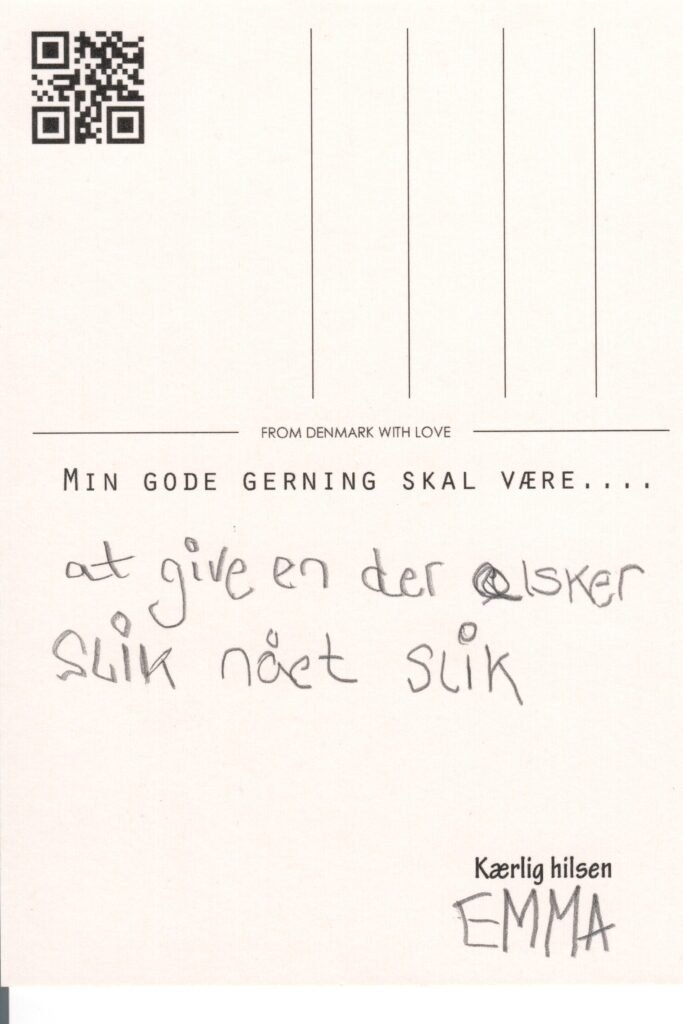 FROM DENMARK WITH LOVE
MIN GODE GERNING SKAL VÆRE....
at give en der elsker
SLIK nået SLIK
Kærlig hilsen
EMMA